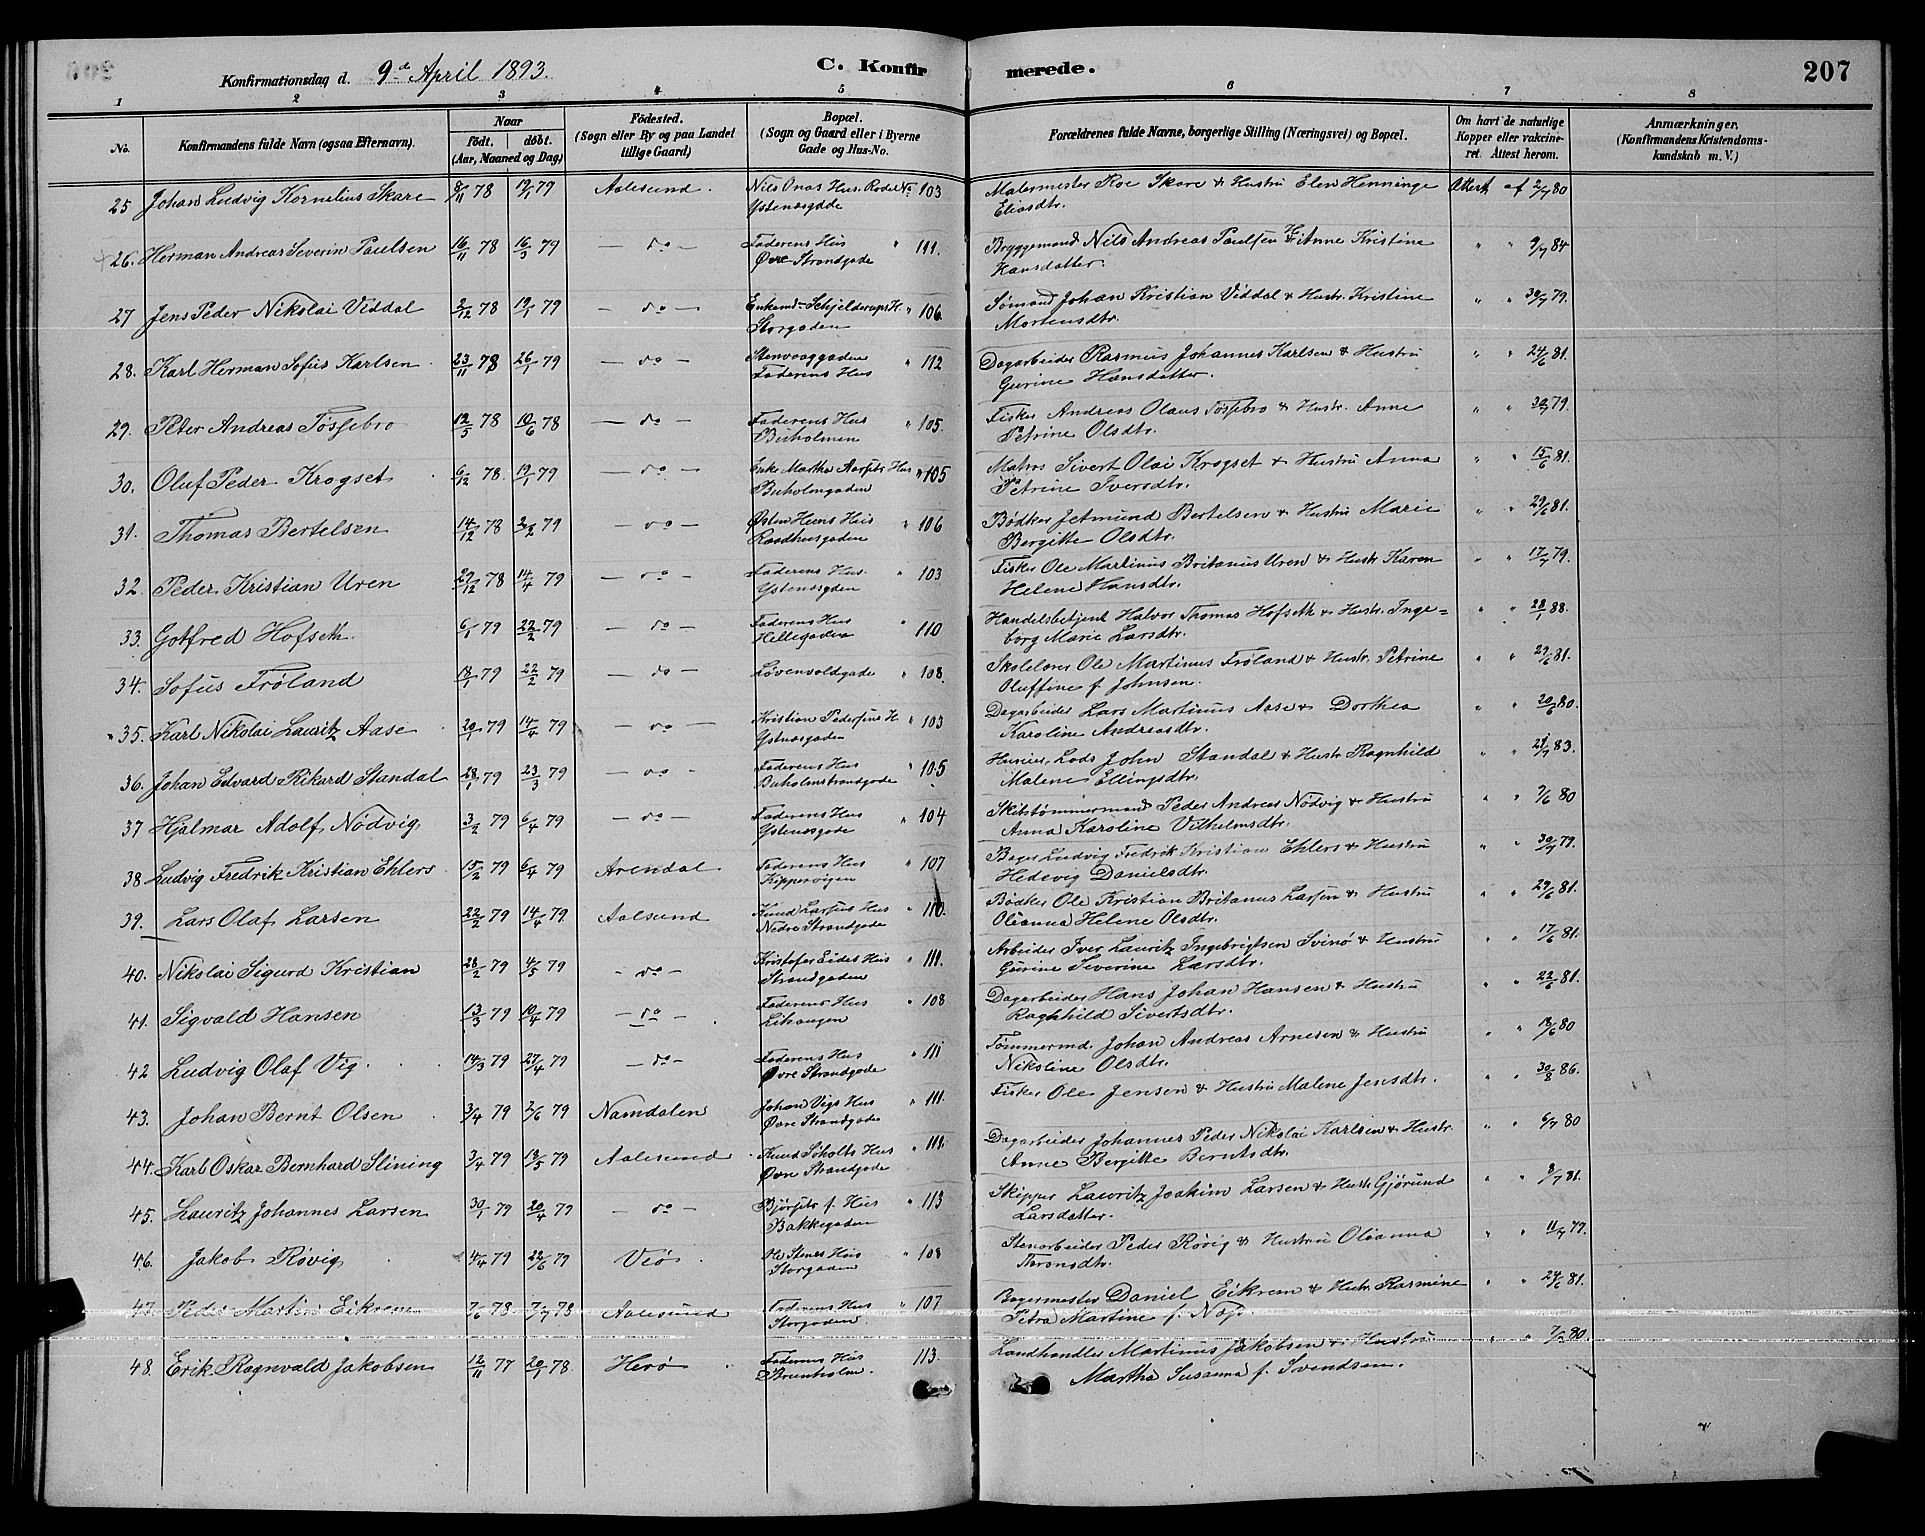 Konfirmationsdag d. 9d April 1893. C. Konfirmerede. 207
1 2 3 4 5 6 7 8
No. Konfirmandens fulde Navn (ogsaa Efternavn). Naar födt. döbt. (Aar, Maaned og Dag) Födested. (Sogn eller By og paa Landet tillige Gaard) Bopæl. (Sogn og Gaard eller i Byerne Gade og Hus-No. Forældrenes fulde Navne, borgerlige Stilling (Næringsvei) og Bopæl. Om havt de naturlige Kopper eller vakcineret. Attest herom. Anmærkninger. (Konfirmandens Kristendomskundskab m. V.)
25 Johan Ludvig Kornelius Skare 8/11 78 19/1 79 Aalesund. Nils Onas Hus. Rode No 103 Malermester Roe Skare & Hustru Elen Henninge Attest af 2/7 80
Ystenæsgade Eliasdtr.
26. Herman Andreas Severin Paulsen 16/11 78 16/3 79 — do — Faderens Hus " 111. Bryggemand Nils Andreas Paulsen & H. Anne Kristine " " 9/7 84
Øvre Strandgade Hansdatter.
27 Jens Peder Nikolai Viddal 2/12 78 19/1 79 — do — Enkemd. Schjelderups H. " 106 Sømand Johan Kristian Viddal & Hustr. Kristine " " 30/7 79.
Storgaden Mortensdtr.
28. Karl Herman Sofus Karlsen 23/11 78 26/1 79 — do — Stenvaaggaden " 112 Dagarbeider Rasmus Johannes Karlsen & Hustru " " 24/6 81.
Faderens Hus Gurine Hansdatter.
29. Peter Andreas Tössebro 12/5 78 10/6 78 — do — Faderens Hus " 105. Fisker Andreas Olaus Tössebro & Hustr. Anne " " 30/7 79.
Buholmen Petrine Olsdtr.
30. Oluf Peder Krogset 6/12 78. 19/1 79 — do — Enke Martha Aarsets Hus " 105 Matros Sivert Olai Krogset & Hustru Anna " " 15/6 81.
Buholmgaden Petrine Iversdtr.
31. Thomas Bertelsen 14/12 78 2/2 79 — do — Østen Hems Hus " 106 Bødker Jetmund Bertelsen & Hustru Marie " " 29/6 81.
Raadhusgaden Bergitte Olsdtr.
32. Peder Kristian Uren 27/12 78 14/4 79 — do — Faderens Hus. " 103 Fisker Ole Martinus Britanus Uren & Hustr Karen " " 17/7 79.
Ystenæsgden Helene Hansdtr.
33. Gotfred Hofseth. 6/1 79 22/2 79 — do — Faderens Hus " 110 Handelsbetjent Halvor Thomas Hofseth & Hustr. Inge= " " 28/1 88.
Hellegaden borg Marie Larsdtr.
34. Sofus Frøland 13/1 79 22/2 79 — do — Løvenvoldgade " 108. Skolelærer Ole Martinus Frøland & Hustr. Petrine " " 29/6 81.
Oluffine f. Johnsen.
35. Karl Nikolai Lauritz Aase 20/1 79 14/4 79 — do — Kristian Pedersens H. " 103 Dagarbeider Lars Martinus Aase & Dorthea " " 30/6 80.
Ystnæsgaden Karoline Andreasdtr.
36. Johan Edvard Rikard Standal 28/1 79 23/3 79 — do — Faderens Hus " 105 Huseier, Lods John Standal & Hustr Ragnhild " " 21/7 83.
Buholmstrandgade Malene Ellingsdtr.
37 Hjalmar Adolf Nödvig 3/2 79 6/4 79 — do — Faderens Hus " 104 Skibstømmermand Peder Andreas Nödvig & Hustru " " 7/6 80
Ystenæsgade Anna Karoline Vilhelmsdtr.
38 Ludvig Fredrik Kristian Ehlers 15/2 79 6/4 79 Arendal. Faderens Hus " 107 Bager Ludvig Fredrik Kristian Ehlers & Hustru " " 30/7 79.
Kippervigen Hedevig Danielsdtr.
39. Lars Olaf Larsen 22/2 79 14/4 79 Aalesund Knud Larsens Hus " 110. Bødker Ole Kristian Britanus Larsen & Hustru " " 29/6 81.
Nedre Strandgade Oleanna Helene Olsdtr.
40. Nikolai Sigurd Kristian 28/2 79 4/5 79 — do — Kristofer Eides Hus " 111. Arbeider Iver Lauritz Ingebrigtsen Svinö & Hustru " " 17/6 81.
Strandgaden Gurine Severine Larsdtr.
41. Sigvald Hansen 13/3 79 10/4 79 — do — Faderens Hus " 108 Dagarbeider Hans Johan Hansen & Hustru " " 22/6 81.
Lihaugen Ragnhild Sivertsdtr.
42 Ludvig Olaf Vig. 14/3 79 27/4 79 — do — Faderens Hus " 111 Tømmermd. Johan Andreas Arnesen & Hustru " " 18/6 80
Øvre Strandgade Nikoline Olsdtr.
43. Johan Bernt Olsen 3/4 79 2/6 79 Namdalen Johan Vigs Hus " 111. Fisker Ole Jensen & Hustru Malene Jensdtr. " " 30/8 86.
Øvre Strandgade
44. Karl Oskar Bernhard Slining 3/4 79 18/5 79 Aalesund Knud Soholts Hus " 111. Dagarbeider Johannes Peder Nikolai Karlsen & Hustr. " " 6/7 80
Øvre Strandgade Anne Bergitte Berntsdtr.
45. Lauritz Johannes Larsen 30/1 79 20/4 79 — do — f. Hus " 113 Skipper Lauritz Joakim Larsen & Hustr Gjørund " " 8/7 81.
Bakkegaden Larsdatter.
46. Jakob Røvig 4/4 79 22/6 79 Veö Ole Stenes Hus " 108 Stenarbeider Peder Røvig & Hustru Oleanna " " 11/7 77.
Storgaden Toronsdtr.
47. Peder Martin Eikrem 7/6 78 7/7 78 Aalesund Faderens Hus " 107 Bagermester Daniel Eikrem & Hustr Rasmine " " 24/6 81.
Storgaden. Petra Martine f. Næss.
48. Erik Ragnvald Jakobsen 12/11 77 20/1 78 Herö Faderens Hus 113. Landhandler Martinus Jakobsen & Hustru " " 7/7 80.
Brunholm. Martha Susanna f. Svendsen.